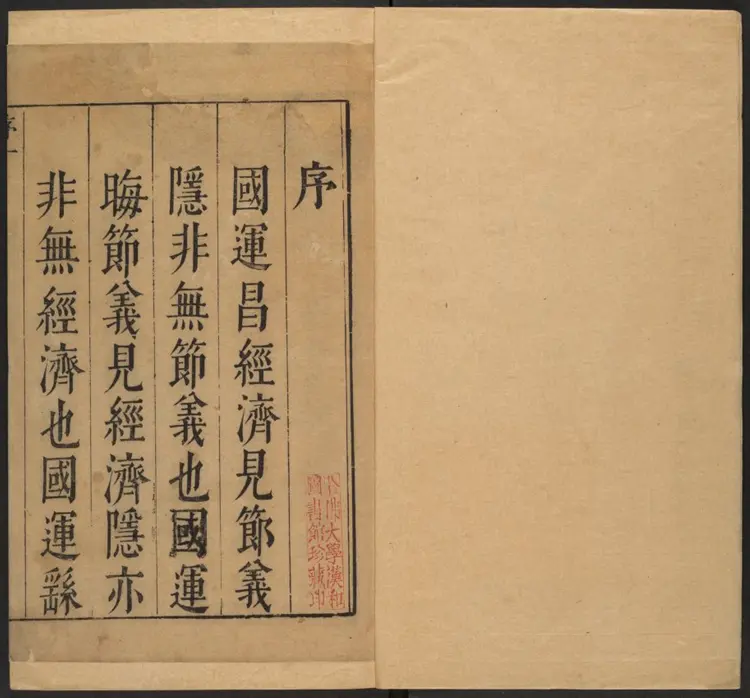 序
國運昌經濟見節義
隱非無節義也國運
晦節義見經濟隱亦
非無經濟也國運繇
序一
哈佛大學漢和
圖書館珍藏印